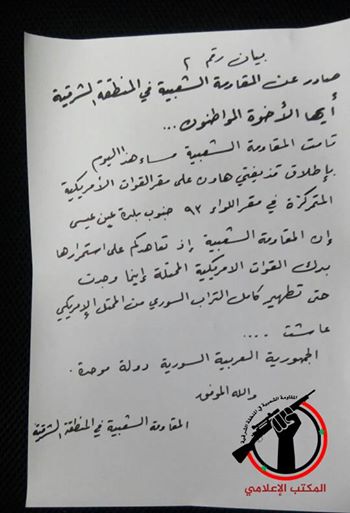 بيان رقم ٢
صادر عن المقاومة الشعبية في المنطقة الشرقية
أيها الأخوة المواطنون ...
قامت المقاومة الشعبية مساء هذا اليوم
بإطلاق قذيفتي هاون على مقر القوات الأمريكية
المتمركزة في مقر اللواء ٩٣ جنوب بلدة عين عيسى
إن المقاومة الشعبية إذ تعاهدكم على استمرارها
بدك القوات الامريكية المحتلة إينما وجدت
حتى تطهير كامل التراب السوري من المحتل الإمريكي
عاشت ....
الجمهورية العربية السورية دولة موحدة.
والله الموفق
المقاومة الشعبية في المنطقة الشرقية
المقاومة الشعبية في المنطقة الشرقية
المكتب الإعلامي